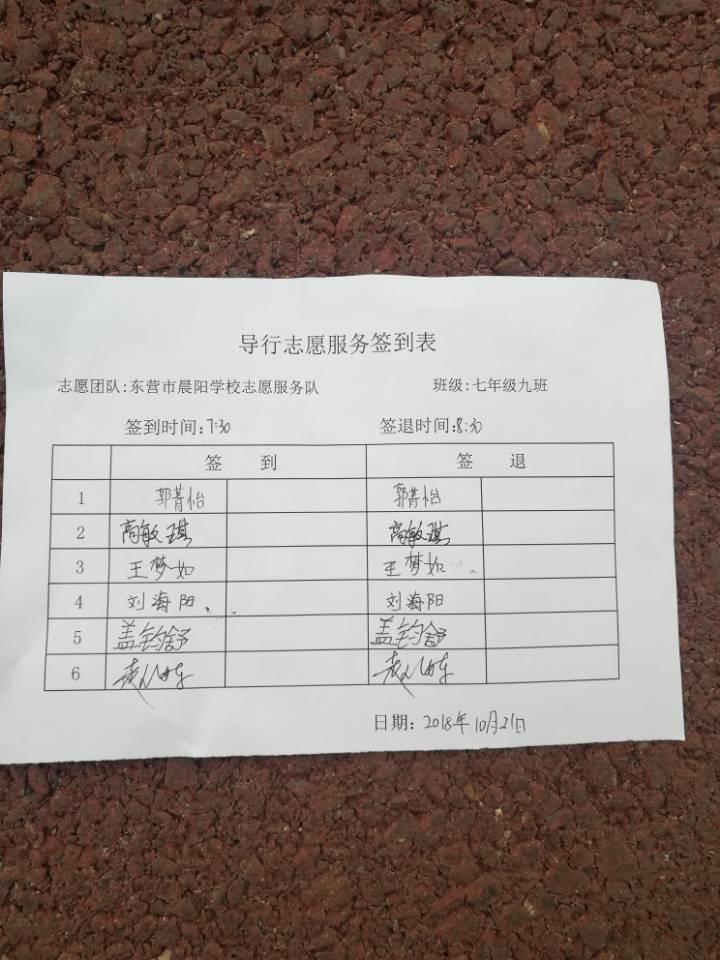 导行志愿服务签到表
志愿团队:东营市晨阳学校志愿服务队 班级:七年级九班
签到时间:7:30 签退时间:8:30
签 到 签 退
1 郭菁怡 郭菁怡
2 高敏琪 高敏琪
3 王梦如 王梦如
4 刘海阳 刘海阳
5 盖钧舒 盖钧舒
6
日期: 2018年10月21日